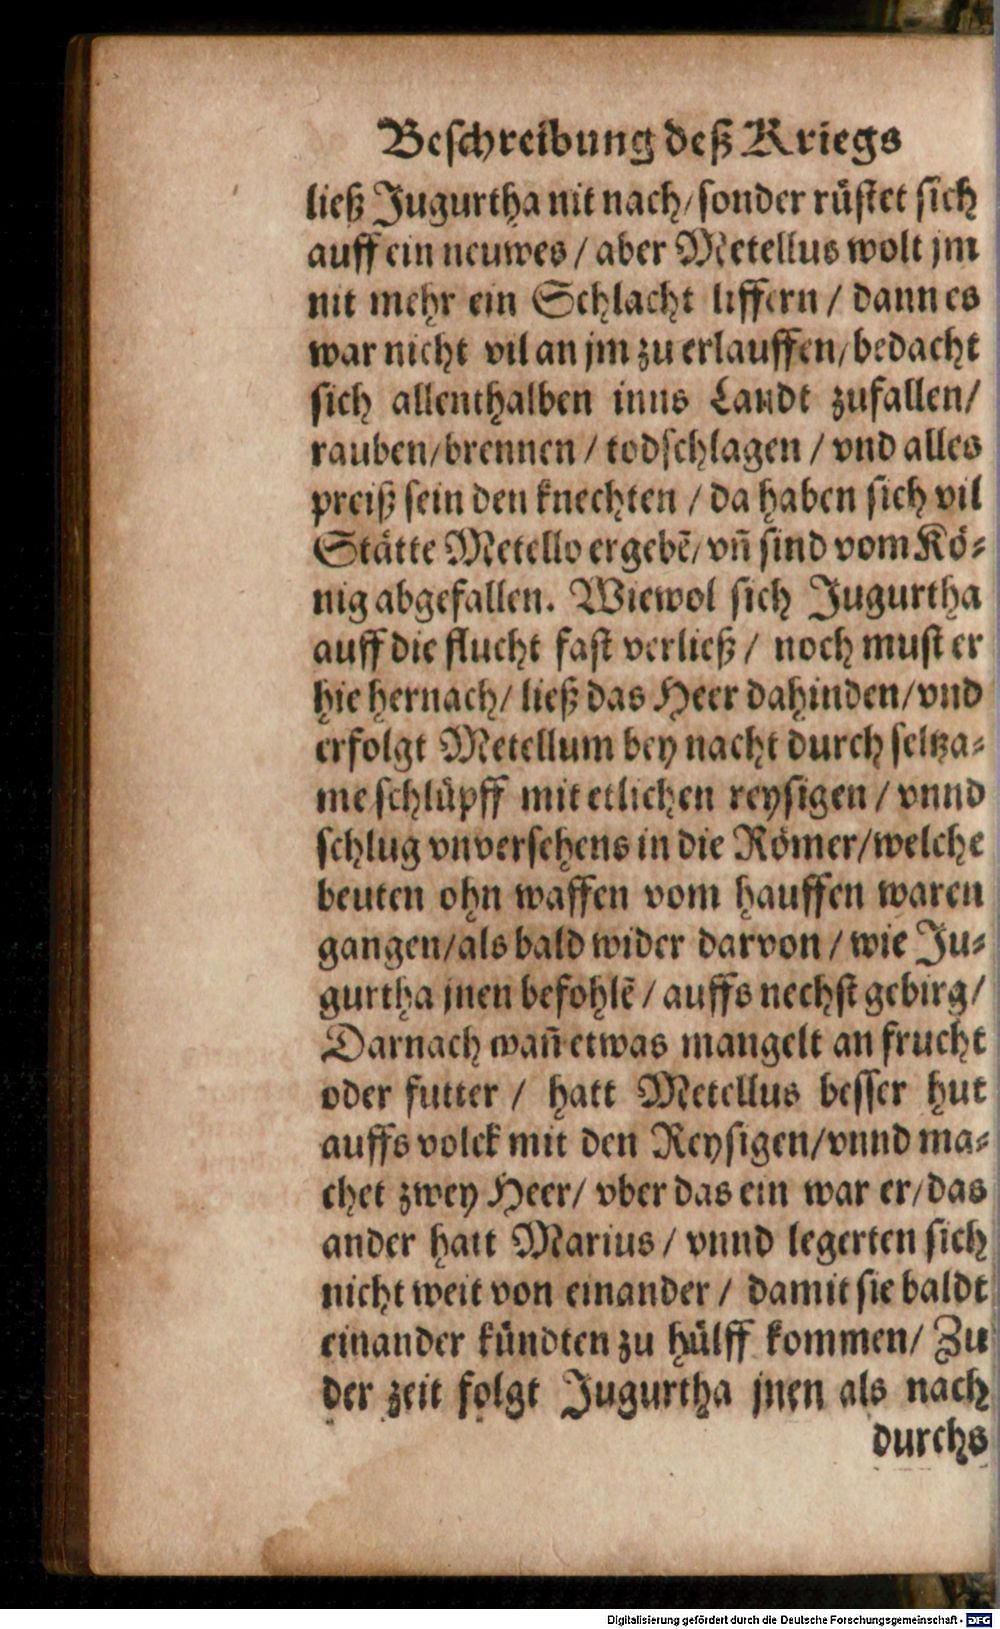 Beschreibung deß Kriegs
ließ Jugurtha nit nach/ sonder rüstet sich
auff ein neuwes / aber Metellus wolt jm
nit mehr ein Schlacht liffern / dann es
war nicht vil an jm zu erlauffen/ bedacht
sich allenthalben inns Landt zufallen/
rauben/brennen / todschlagen / vnd alles
preiß sein den knechten / da haben sich vil
Stätte Metello ergebẽ/ vñ sind vom Kö⸗
nig abgefallen. Wiewol sich Jugurtha
auff die flucht fast verließ / noch must er
hie hernach/ ließ das Heer dahinden/vnd
erfolgt Metellum bey nacht durch seltza⸗
me schlüpff mit etlichen reysigen / vnnd
schlug vnversehens in die Römer/welche
beuten ohn waffen vom hauffen waren
gangen/als bald wider darvon / wie Ju⸗
gurtha jnen befohlẽ / auffs nechst gebirg/
Darnach wañ etwas mangelt an frucht
oder futter / hatt Metellus besser hut
auffs volck mit den Reysigen/vnnd ma⸗
chet zwey Heer/ vber das ein war er/das
ander hatt Marius / vnnd legerten sich
nicht weit von einander / damit sie baldt
einander kündten zu hülff kommen/ Zu
der zeit folgt Jugurtha jnen als nach
durchs
Digitalisierung gefördert durch die Deutsche Forschungsgemeinschaft - DFG